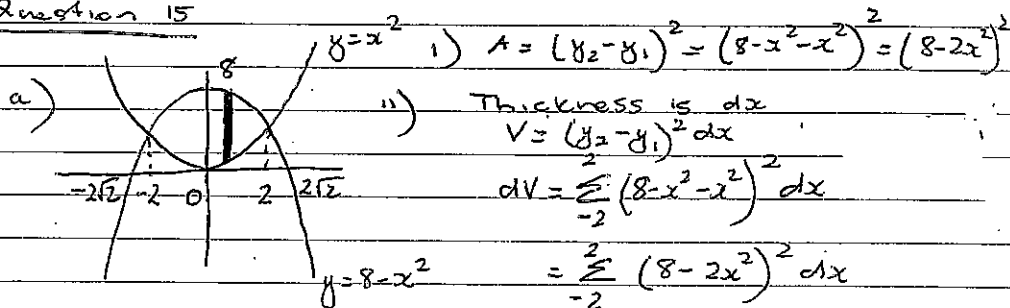 Question 15
a)
y=x²
8
-2√2 -2 0 2 2√2
y=8-x²
i) A = (y₂-y₁)² = (8-x²-x²)² = (8-2x²)²
ii) Thickness is dx
V= (y₂-y₁)² dx
dV = Σ₋₂² (8-x²-x²)² dx
= Σ₋₂² (8-2x²)² dx